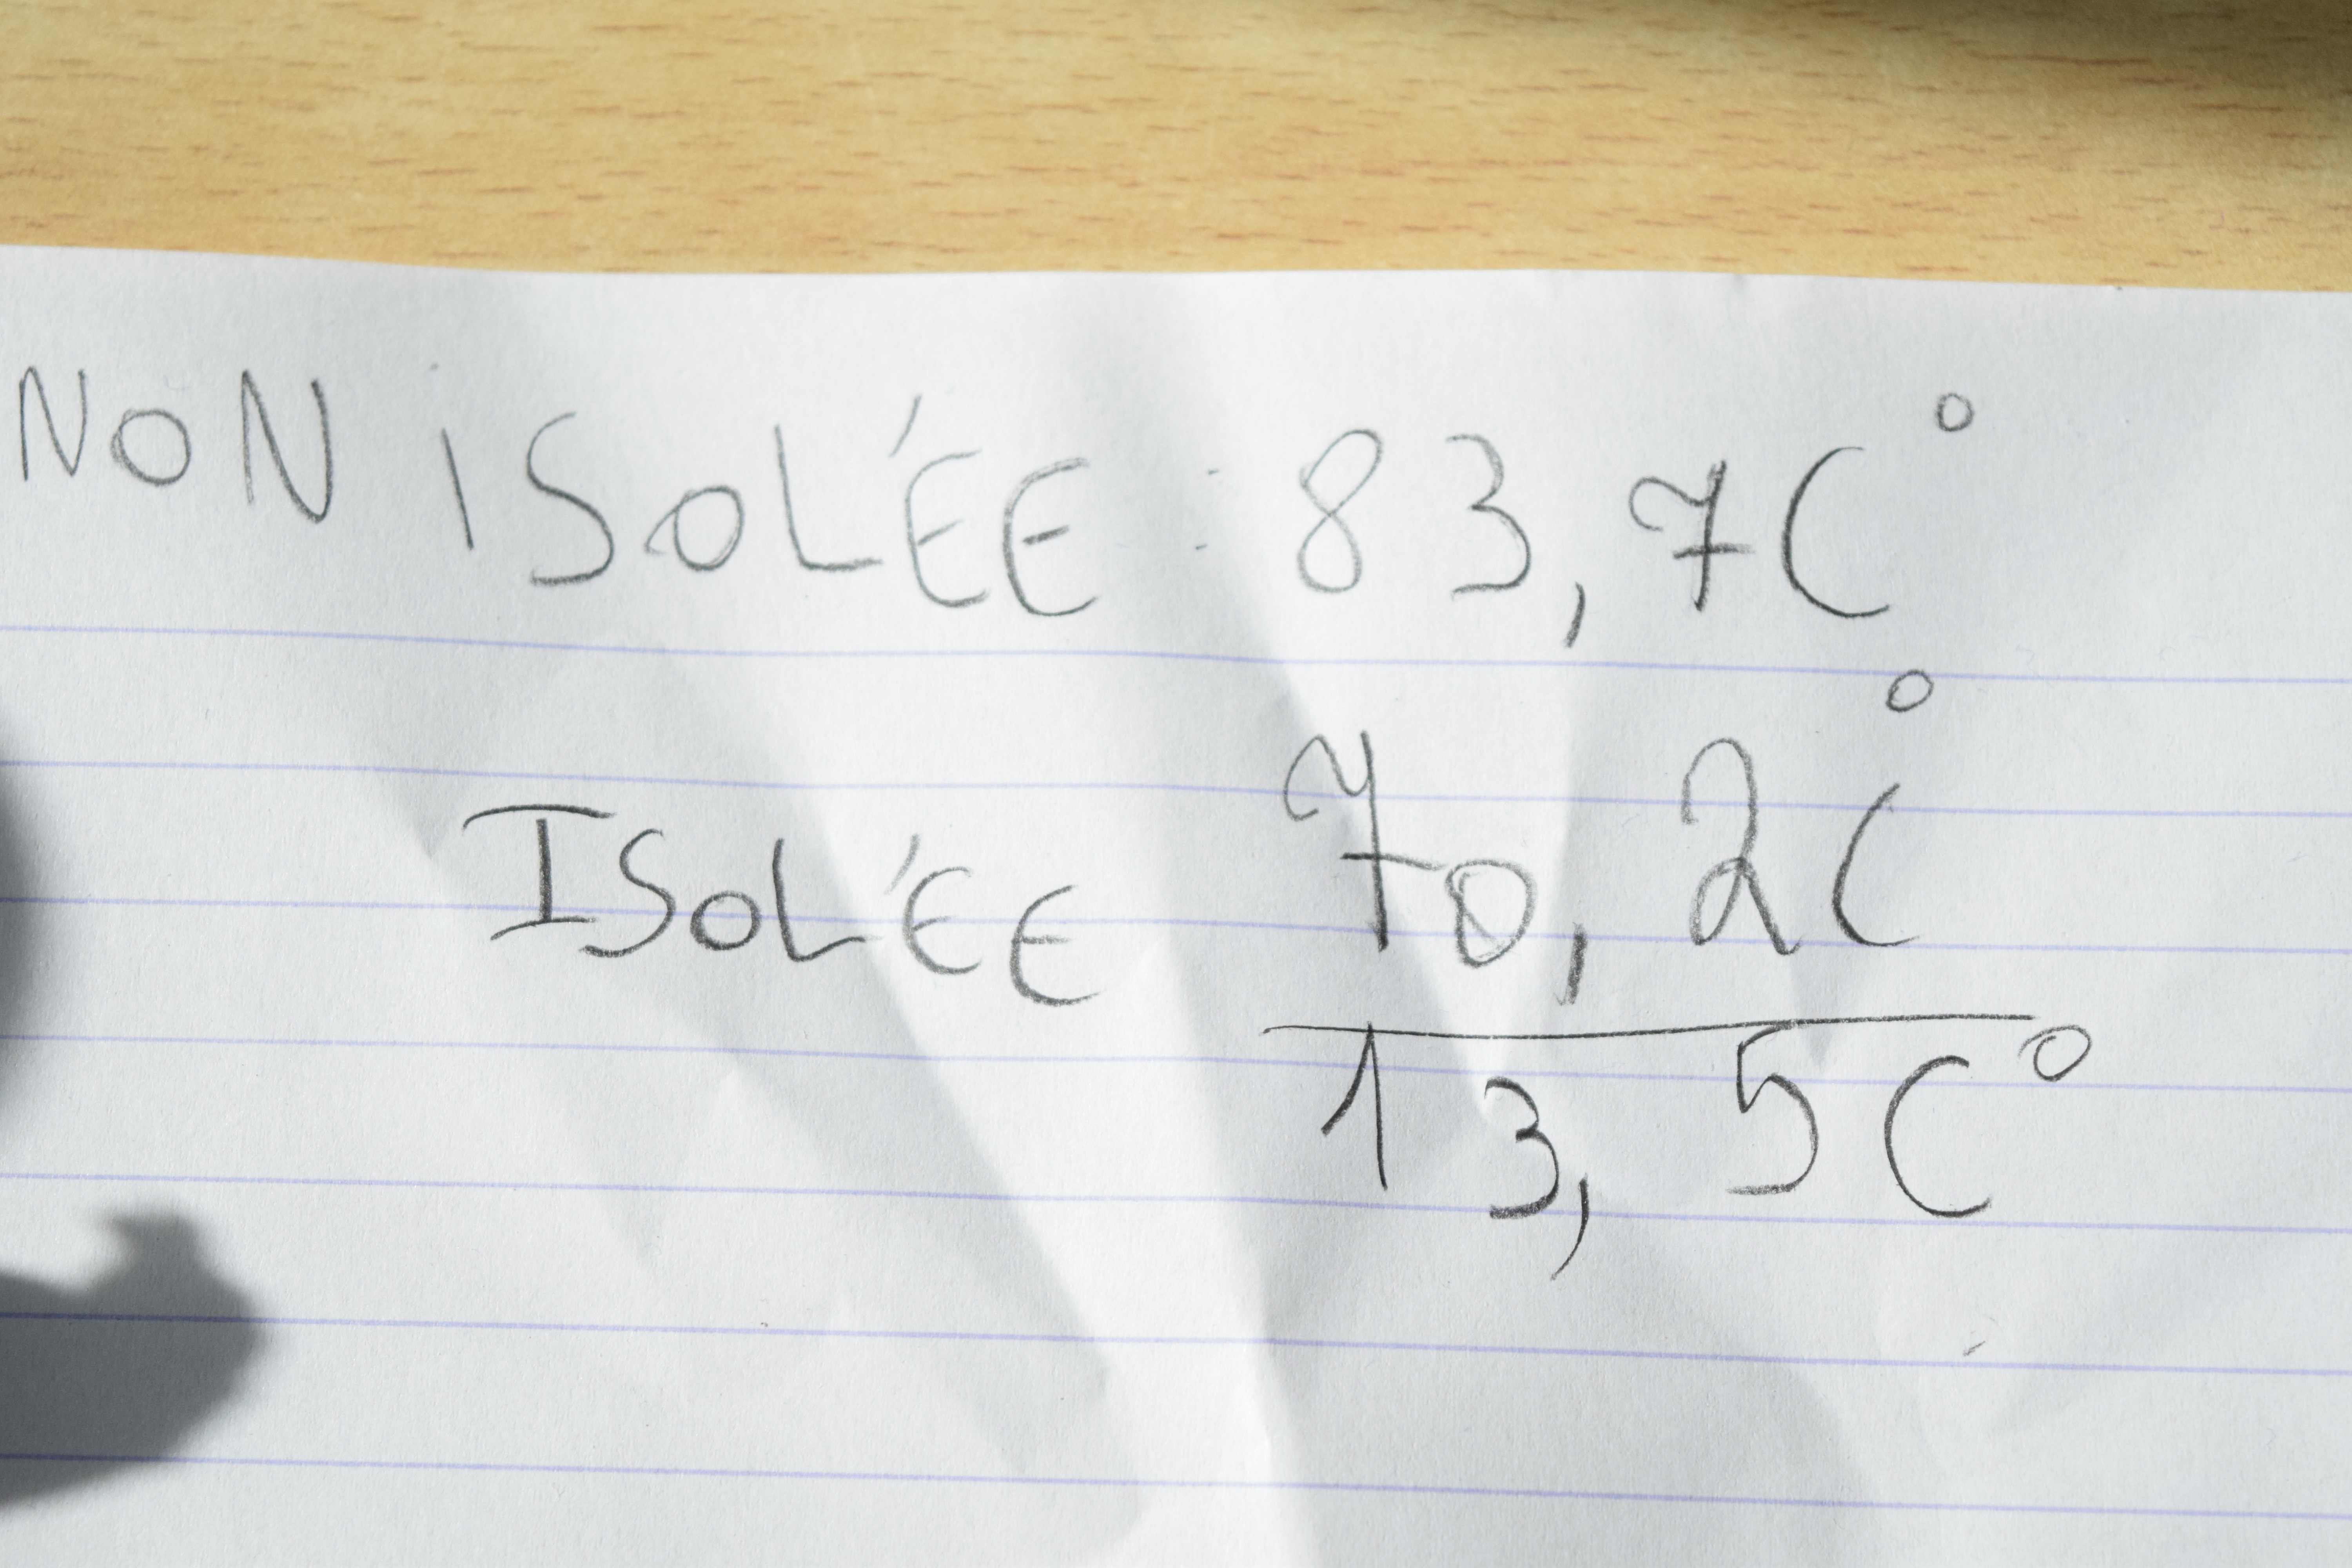 NON ISOLÉE : 83,7C°
ISOLÉE 70,2C°
13,5C°